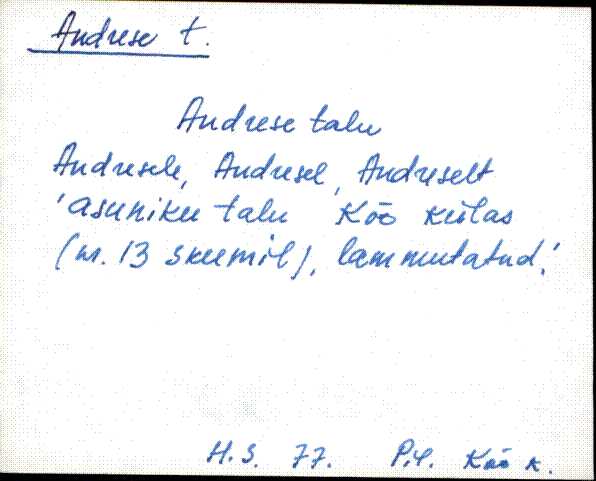 Andrese t.
Andrese talu
Andresele, Andresel, Andreselt
'asuniku talu Kõo külas
(nr. 13 skeemil), lammutatud.'
H.S. 77. Pil. Kõo k.